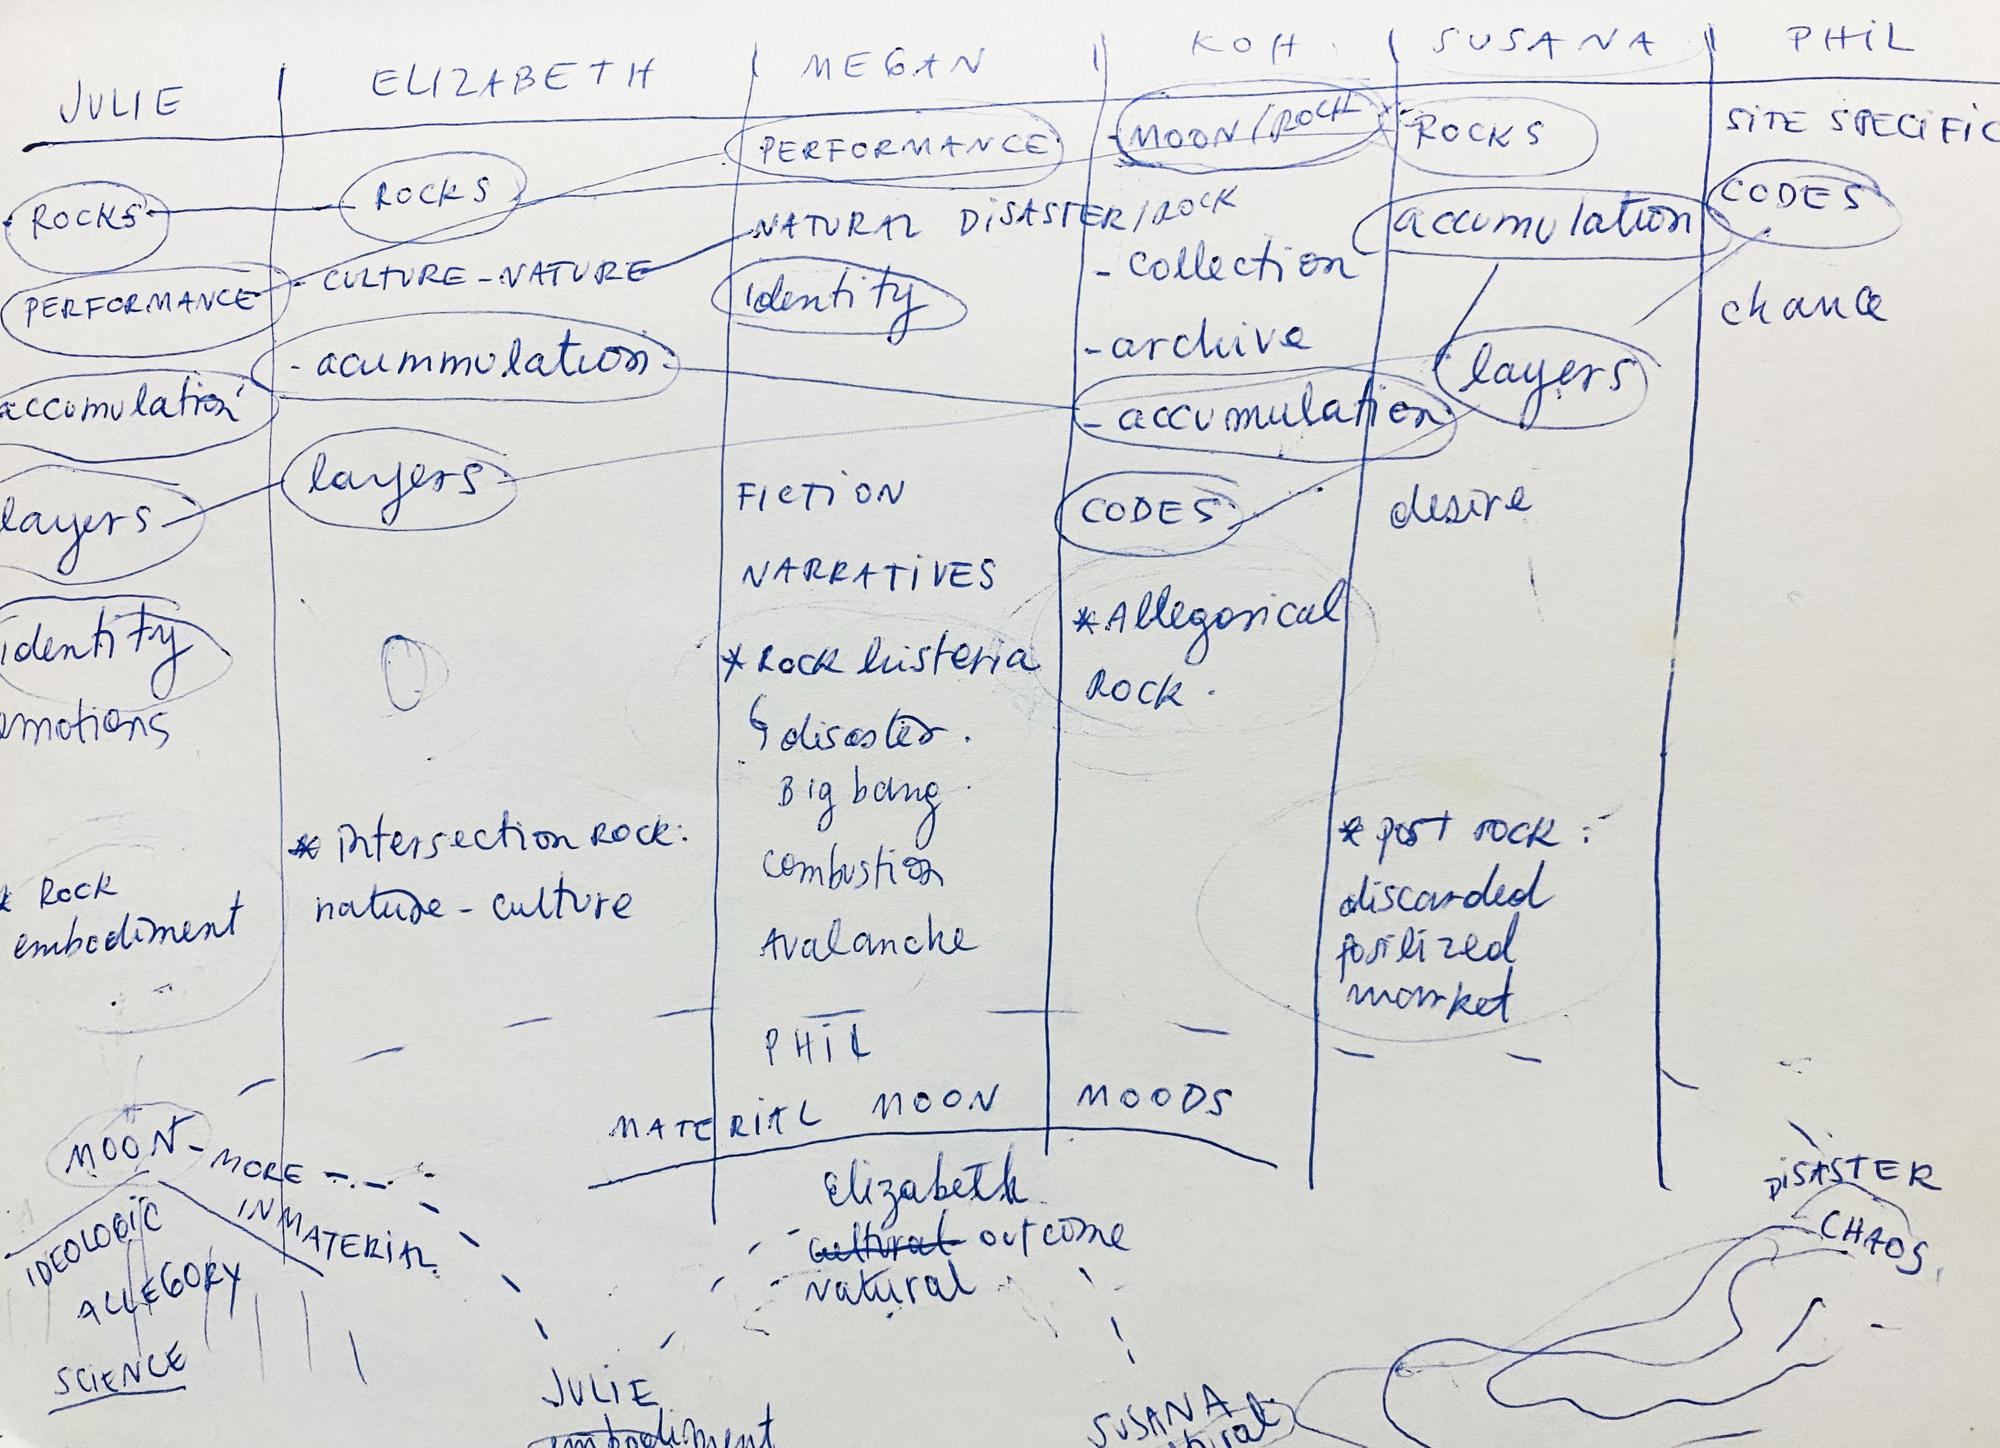 JULIE
ROCKS
PERFORMANCE
accumulation
layers
identity
emotions
* ROCK
embodiment
ELIZABETH
ROCKS
- CULTURE - NATURE
- acummulation
layers
* intersection ROCK:
nature - culture
MEGAN
PERFORMANCE
NATURAL DISASTER/ROCK
identity
FICTION
NARRATIVES
* ROCK histeria
disaster.
Big bang
combustion
Avalanche
KOH
- MOON/ROCK
- collection
- archive
- accumulation
CODES
* Allegorical
ROCK.
SUSANA
ROCKS
accumulation
layers
desire
* post rock:
discarded
fosilized
market
PHIL
SITE SPECIFIC
CODES
chance
PHIL
MATERIAL MOON MOODS
MOON - MORE
INMATERIAL
IDEOLOGIC
ALLEGORY
SCIENCE
Elizabeth
cultural outcome
natural
JULIE
embodiment
SUSANA
DISASTER
CHAOS